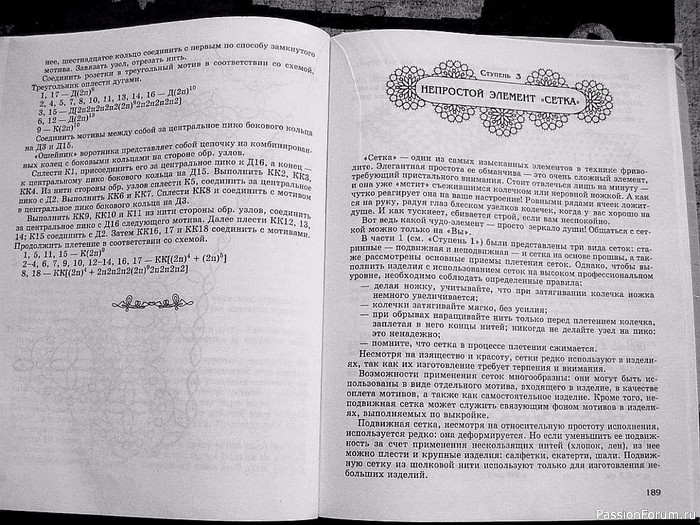 нее, шестнадцатое кольцо соединить с первым по способу замкнутого
мотива. Завязать узел, отрезать нить.
Соединить розетки в треугольный мотив в соответствии со схемой.
Треугольник оплести дугами.
1, 17 — Д(2п)⁹
2, 4, 5, 7, 8, 10, 11, 13, 14, 16 — Д(2п)¹⁰
3, 15 — Д[2п2п2п2(2п)⁹2п2п2п2]
6, 12 — Д(2п)¹³
9 — К(2п)¹⁰
Соединить мотивы между собой за центральное пико бокового кольца
на Д3 и Д15.
«Ошейник» воротника представляет собой цепочку из комбинирован-
ных колец с боковыми кольцами на стороне обр. узлов.
Сплести К1, присоединить его за центральное пико к Д16, а конец —
к центральному пико бокового кольца на Д15. Выполнить КК2, КК3,
КК4. Из нити стороны обр. узлов сплести К5, соединить за центральное
пико с Д2. Выполнить КК6 и КК7. Сплести КК8 и соединить с мотивом
в центральное пико бокового кольца на Д3.
Выполнить КК9, КК10 и К11 из нити стороны обр. узлов, соединить
за центральное пико с Д16 следующего мотива. Далее плести КК12, 13,
14; К15 соединить с Д2. Затем КК16, 17 и КК18 соединить с мотивами.
Продолжить плетение в соответствии со схемой.
1, 5, 11, 15 — К(2п)⁹
2–4, 6, 7, 9, 10, 12–14, 16, 17 — КК[(2п)⁴ + (2п)⁵]
8, 18 — КК[(2п)⁴ + 2п2п2п2(2п)⁹2п2п2п2]
Ступень 3
НЕПРОСТОЙ ЭЛЕМЕНТ «СЕТКА»
«Сетка» — один из самых изысканных элементов в технике фриво-
лите. Элегантная простота ее обманчива — это очень сложный элемент,
требующий пристального внимания. Стоит отвлечься лишь на минуту —
и она уже «мстит» съежившимся колечком или неровной ножкой. А как
чутко реагирует она на ваше настроение! Ровными рядами ячеек ложит-
ся на руку, радуя глаз блеском узелков колечек, когда у вас хорошо на
душе. И как тускнеет, сбивается строй, если вам неспокойно.
Вот ведь какой чудо-элемент — просто зеркало души! Общаться с сет-
кой можно только на «Вы».
В части 1 (см. «Ступень 1») были представлены три вида сеток: ста-
ринные — подвижная и неподвижная — и сетка на основе прошвы, а так-
же рассмотрены основные приемы плетения сеток. Однако, чтобы вы-
полнить изделия с использованием сеток на высоком профессиональном
уровне, необходимо соблюдать определенные правила:
— делая ножку, учитывайте, что при затягивании колечка ножка
немного увеличивается;
— колечки затягивайте мягко, без усилия;
— при обрывах наращивайте нить только перед плетением колечка,
заплетая в него концы нитей; никогда не делайте узел на пико:
это ненадежно;
— помните, что сетка в процессе плетения сжимается.
Несмотря на изящество и красоту, сетки редко используют в издели-
ях, так как их изготовление требует терпения и внимания.
Возможности применения сеток многообразны: они могут быть ис-
пользованы в виде отдельного мотива, входящего в изделие, в качестве
оплета мотивов, а также как самостоятельное изделие. Кроме того, не-
подвижная сетка может служить связующим фоном мотивов в издели-
ях, выполняемых по выкройке.
Подвижная сетка, несмотря на относительную простоту исполнения,
используется редко: она деформируется. Но если уменьшить ее подвиж-
ность за счет применения нескользящих нитей (хлопок, лен), из нее
можно плести и крупные изделия: салфетки, скатерти, шали. Подвиж-
ную сетку из шелковой нити используют только для изготовления не-
больших изделий.
189
PassionForum.ru